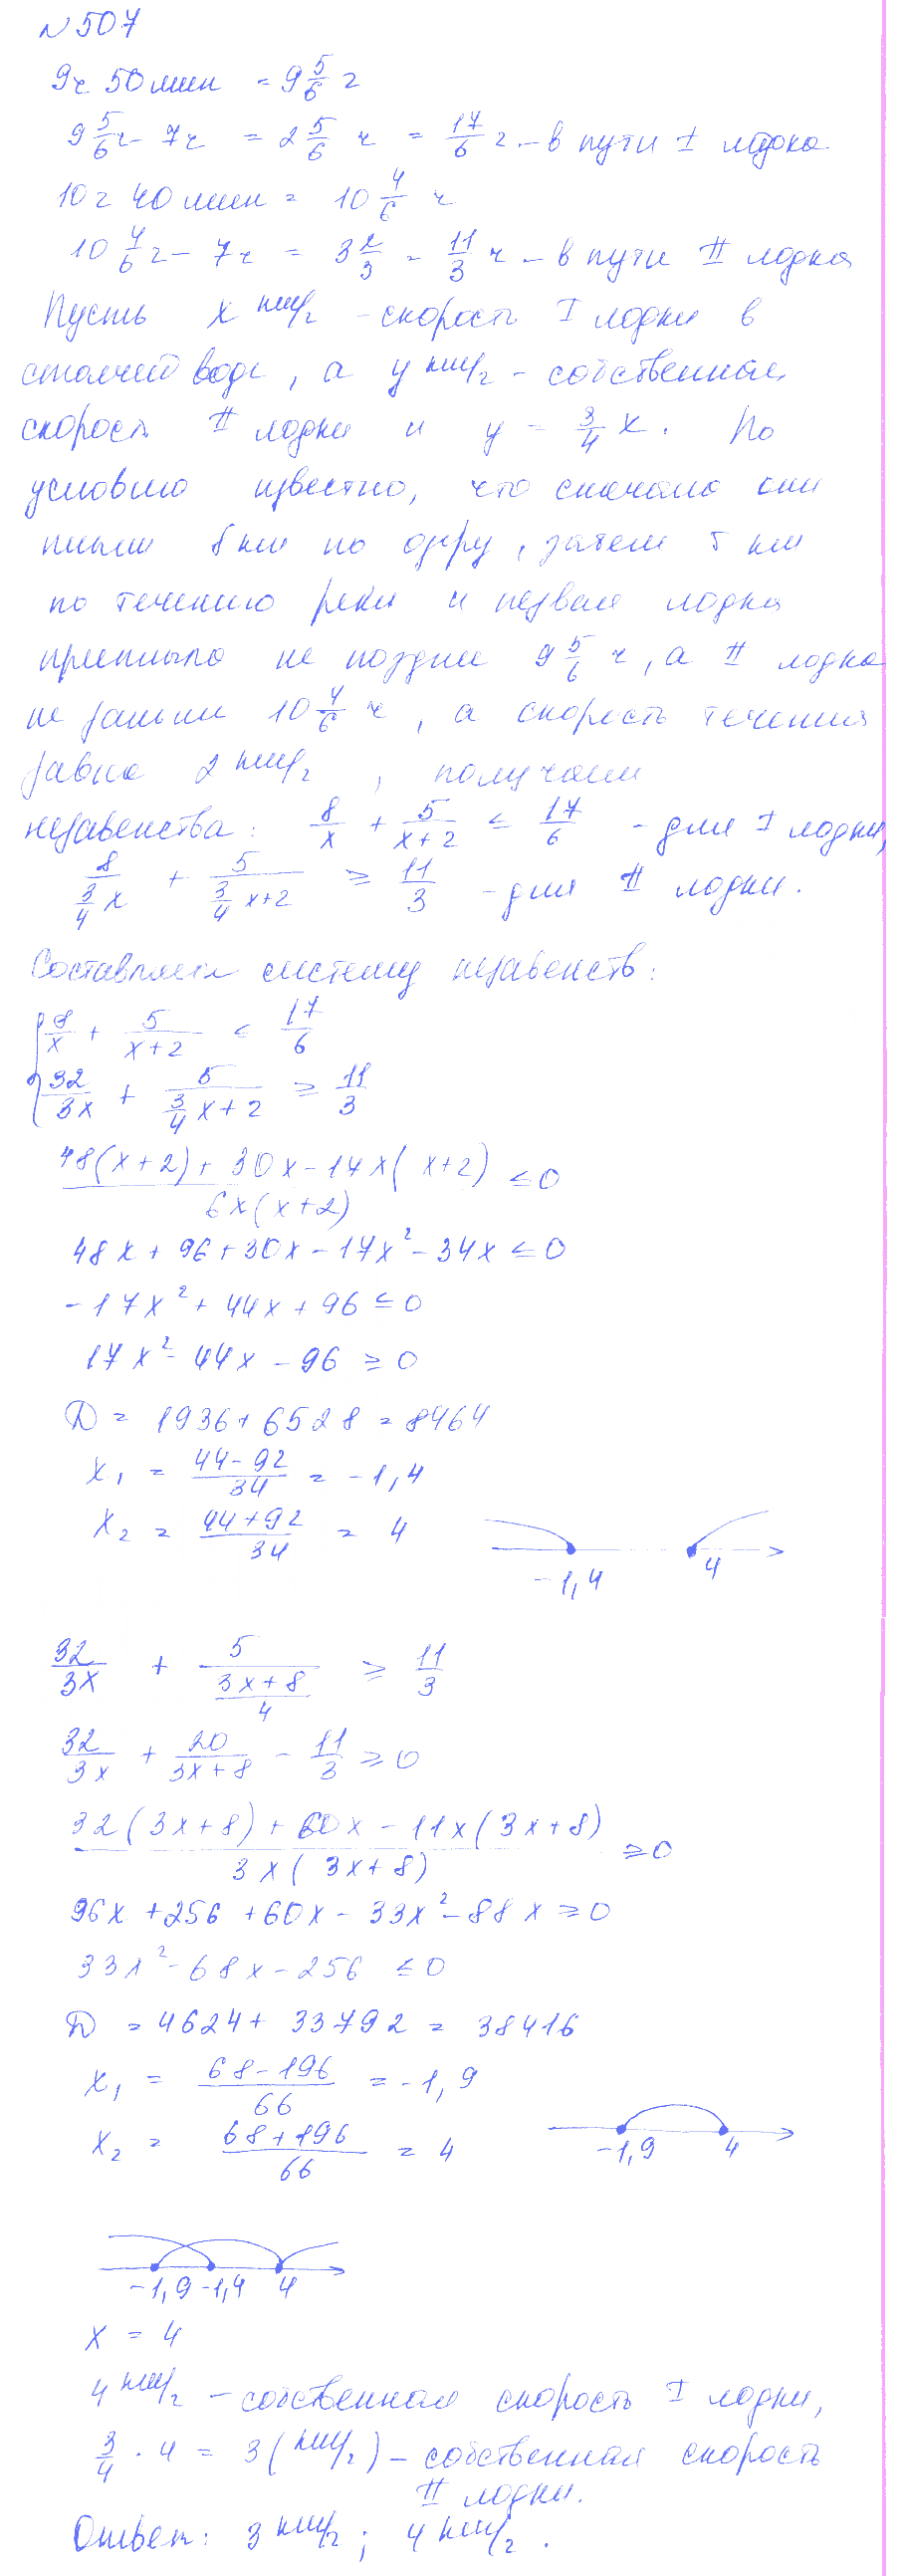 №507
9ч 50 мин = 9 5/6 ч
9 5/6 ч - 7ч = 2 5/6 ч = 17/6 ч. - в пути I лодка.
10ч 40 мин = 10 4/6 ч
10 4/6 ч - 7ч = 3 2/3 = 11/3 ч - в пути II лодка
Пусть x км/ч - скорость I лодки в
стоячей воде, а y км/ч - собственная
скорость II лодки и y = 3/4 x. По
условию известно, что сначала они
плыли 8 км по озеру, затем 5 км
по течению реки и первая лодка
приплыла не позднее 9 5/6 ч, а II лодка
не раньше 10 4/6 ч, а скорость течения
равна 2 км/ч, получаем
неравенства: 8/x + 5/(x+2) ≤ 17/6 - для I лодки,
8/(3/4 x) + 5/(3/4 x+2) ≥ 11/3 - для II лодки.
Составляем систему неравенств:
{ 8/x + 5/(x+2) ≤ 17/6
32/3x + 5/(3/4 x+2) ≥ 11/3
(48(x+2) + 30x - 17x(x+2))/(6x(x+2)) ≤ 0
48x + 96 + 30x - 17x² - 34x ≤ 0
-17x² + 44x + 96 ≤ 0
17x² - 44x - 96 ≥ 0
D = 1936 + 6528 = 8464
x₁ = (44-92)/34 = -1,4
x₂ = (44+92)/34 = 4
-1,4 4
32/3x + 5/((3x+8)/4) ≥ 11/3
32/3x + 20/(3x+8) - 11/3 ≥ 0
(32(3x+8) + 60x - 11x(3x+8))/(3x(3x+8)) ≥ 0
96x + 256 + 60x - 33x² - 88x ≥ 0
33x² - 68x - 256 ≤ 0
D = 4624 + 33792 = 38416
x₁ = (68-196)/66 = -1,9
x₂ = (68+196)/66 = 4
-1,9 4
-1,9 -1,4 4
x = 4
4 км/ч - собственная скорость I лодки,
3/4 · 4 = 3 (км/ч) - собственная скорость
II лодки.
Ответ: 3 км/ч; 4 км/ч.